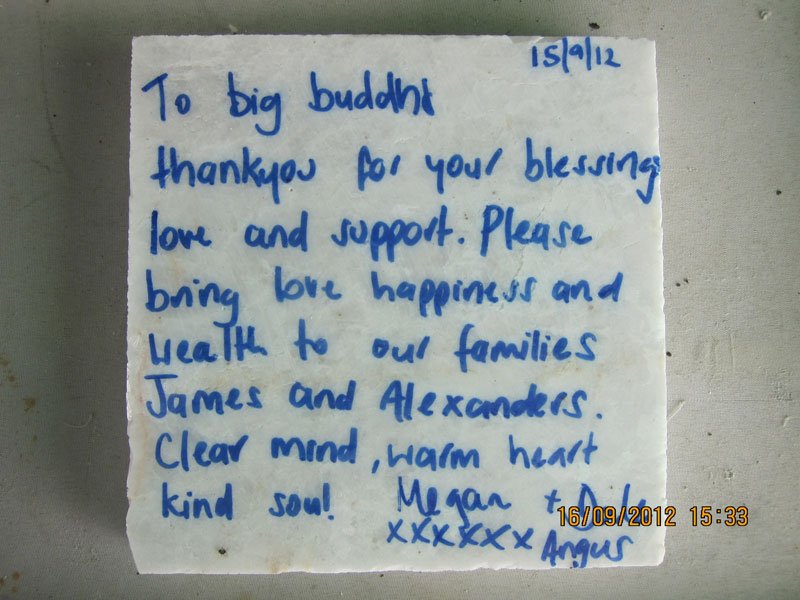 15/9/12
To big buddha
thankyou for your blessings
love and support. Please
bring love happiness and
wealth to our families
James and Alexanders.
Clear mind, warm heart
kind soul Megan +
xxxxxx Angus
16/09/2012 15:33